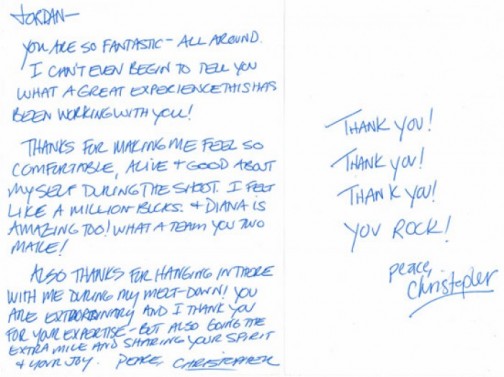 JORDAN—
YOU ARE SO FANTASTIC - ALL AROUND.
I CAN'T EVEN BEGIN TO TELL YOU
WHAT A GREAT EXPERIENCE THIS HAS
BEEN WORKING WITH YOU!
THANKS FOR MAKING ME FEEL SO
COMFORTABLE, ALIVE + GOOD ABOUT
MYSELF DURING THE SHOOT. I FELT
LIKE A MILLION BUCKS. & DIANA IS
AMAZING TOO! WHAT A TEAM YOU TWO
MAKE!
ALSO THANKS FOR HANGING IN THERE
WITH ME DURING MY MELT-DOWN! YOU
ARE EXTRAORDINARY AND I THANK YOU
FOR YOUR EXPERTISE - BUT ALSO GOING THE
EXTRA MILE AND SHARING YOUR SPIRIT
& YOUR JOY. PEACE, CHRISTOPHER
THANK YOU!
THANK YOU!
THANK YOU!
YOU ROCK!
PEACE,
Christopher